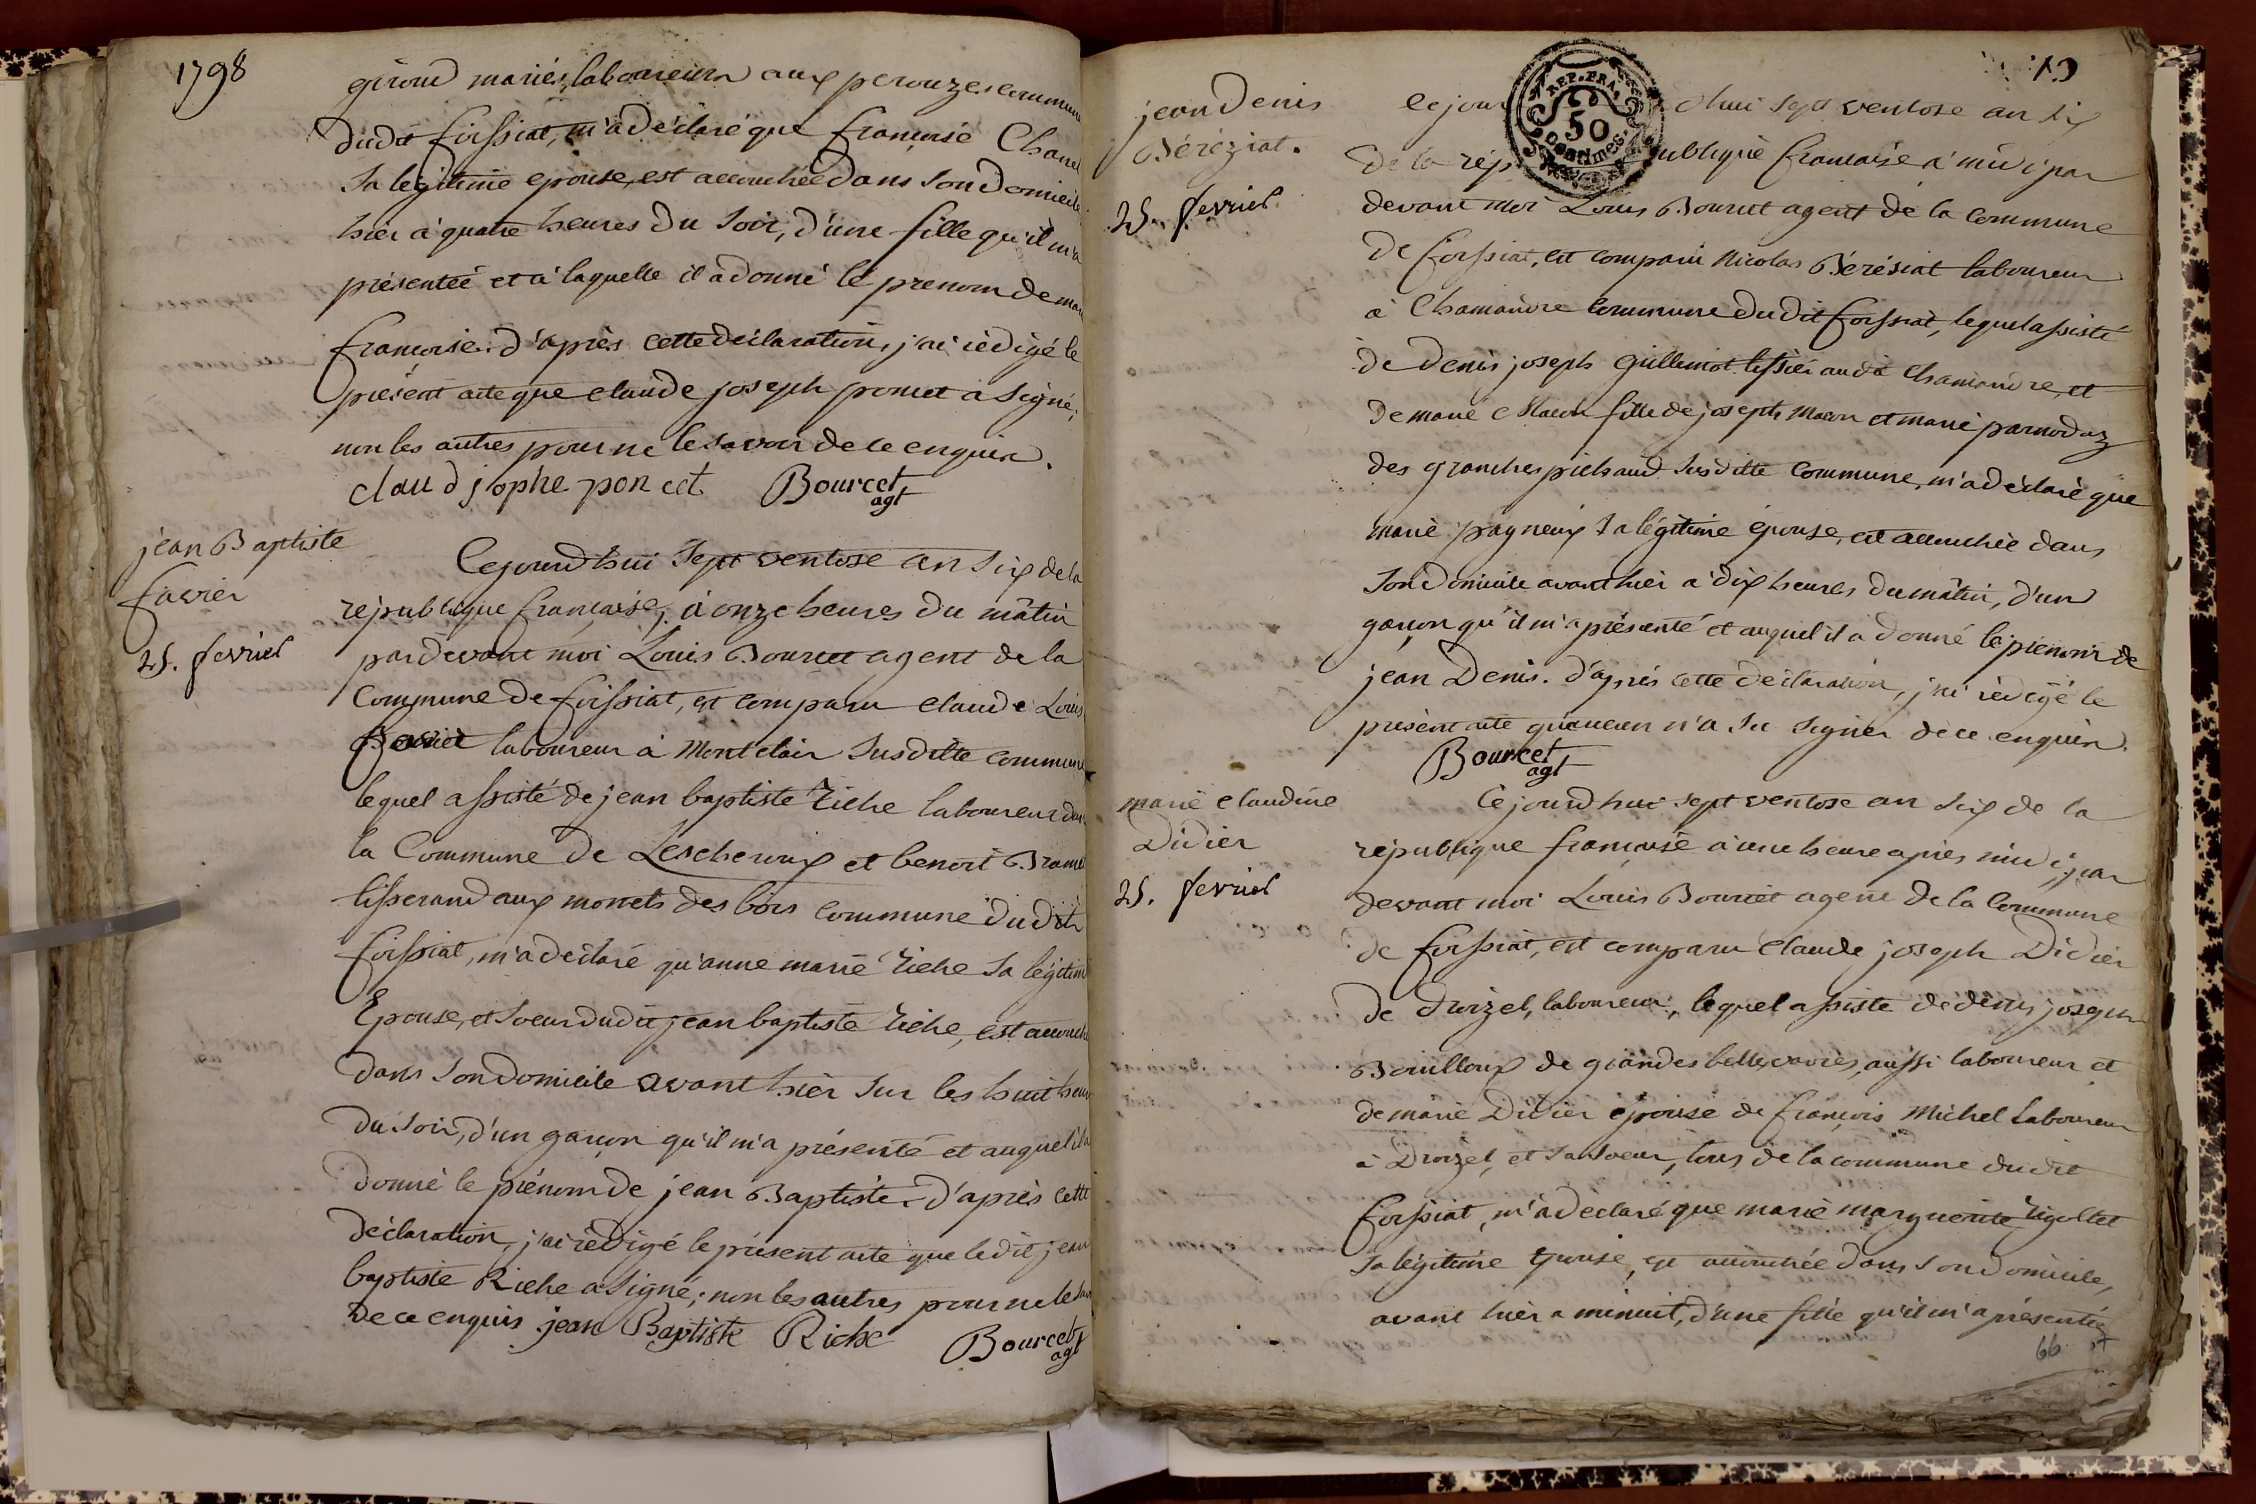 1798
giroud mariés, laboureurs aux perouzes commune
dudit foissiat, m'a déclaré que françoise Chanel
sa légitime épouse, est accouchée dans son domicile
hier à quatre heures du soir, d'une fille qu'il m'a
présentée et à laquelle il a donné le prenom de marie
françoise. d'après cette déclaration, j'ai rédigé le
présent acte que claude joseph poncet a signé,
non les autres pour ne le savoir de ce enquis.
claud jophe poncet Bourcet
agt
jean Baptiste
favier
25. fevrier
Cejourd'hui sept ventose an six de la
république française, à onze heures du mâtin
pardevant moi Louis Bourcet agent de la
commune de foissiat, est comparu claude Louis
favier laboureur à Montclair susditte commune
lequel assisté de jean baptiste riche laboureur dans
la Commune de Lescheroux et benoit Brame
tisserand aux monets des bois commune dudit
foissiat, m'a déclaré qu'anne marie riche sa légitime
Epouse, et soeur dudit jean baptiste riche, est accouchée
dans son domicile avant hier sur les huit heures
du soir, d'un garçon qu'il m'a présenté et auquel il a
donné le prénom de jean Baptiste. d'après cette
déclaration, j'ai rédigé le présent acte que ledit jean
baptiste Riche a signé; non les autres pour ne le
de ce enquis. jean Baptiste Riche Bourcet
agt
jean Denis
Béréziat.
25. fevrier
REP. FRA.
50
centimes
cejour d'hui sept ventose an six
de la rép ublique francaise à midi par
devant moi Louis Bourcet agent de la commune
de foissiat, est comparu Nicolas Bérésiat laboureur
à Chamandre commune dudit foissiat, lequel assisté
de Denis joseph guillemot tissier audit chamandre, et
de marie Macon fille de joseph Macon et marie parnodaz
des granches pichaud susditte commune, m'a déclaré que
marie pagneux sa légitime épouse, est accouchée dans
son domicile avant hier à dix heures du mâtin, d'un
garçon qu'il m'a présenté et auquel il a donné le prénom de
jean Denis. d'après cette déclaration, j'ai rédigé le
présent acte qu'aucun n'a su signer de ce enquis.
Bourcet
agt
marie claudine
Didier
25. fevrier
Cejourd'hui sept ventose an six de la
république française à une heure après midi, par
devant moi Louis Bourcet agent de la Commune
de foissiat, est comparu Claude joseph Didier
de Droizel, laboureur, lequel assisté de denis joseph
Bouilloux de grandes bellevavres, aussi laboureur et
de marie Didier épouse de françois Michel Laboureur
à Droizel, et sa soeur, tous de la commune dudit
foissiat, m'a déclaré que marie marguerite rigollet
sa légitime épouse, est accouchée dans son domicile,
avant hier a minuit, d'une fille qu'il m'a présentée
66 et